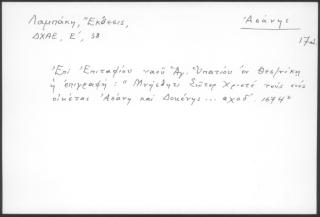 Λαμπάκη, Ἔκθεσις,
ΔΧΑΕ, Ε', 38
Ἀσάνης
17 αἰ.
Ἐπί Ἐπιταφίου ναοῦ Ἁγ. Ὑπατίου ἐν Θεσ/νίκη
ἡ ἐπιγραφή: "Μνήσθητι Σῶτερ Χριστέ τούς σούς
οἰκέτας Ἀσάνη καί Δοκένης ... αχοδ' 1674"